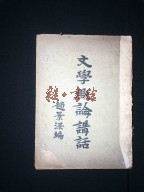 文學概論講話
趙景深編